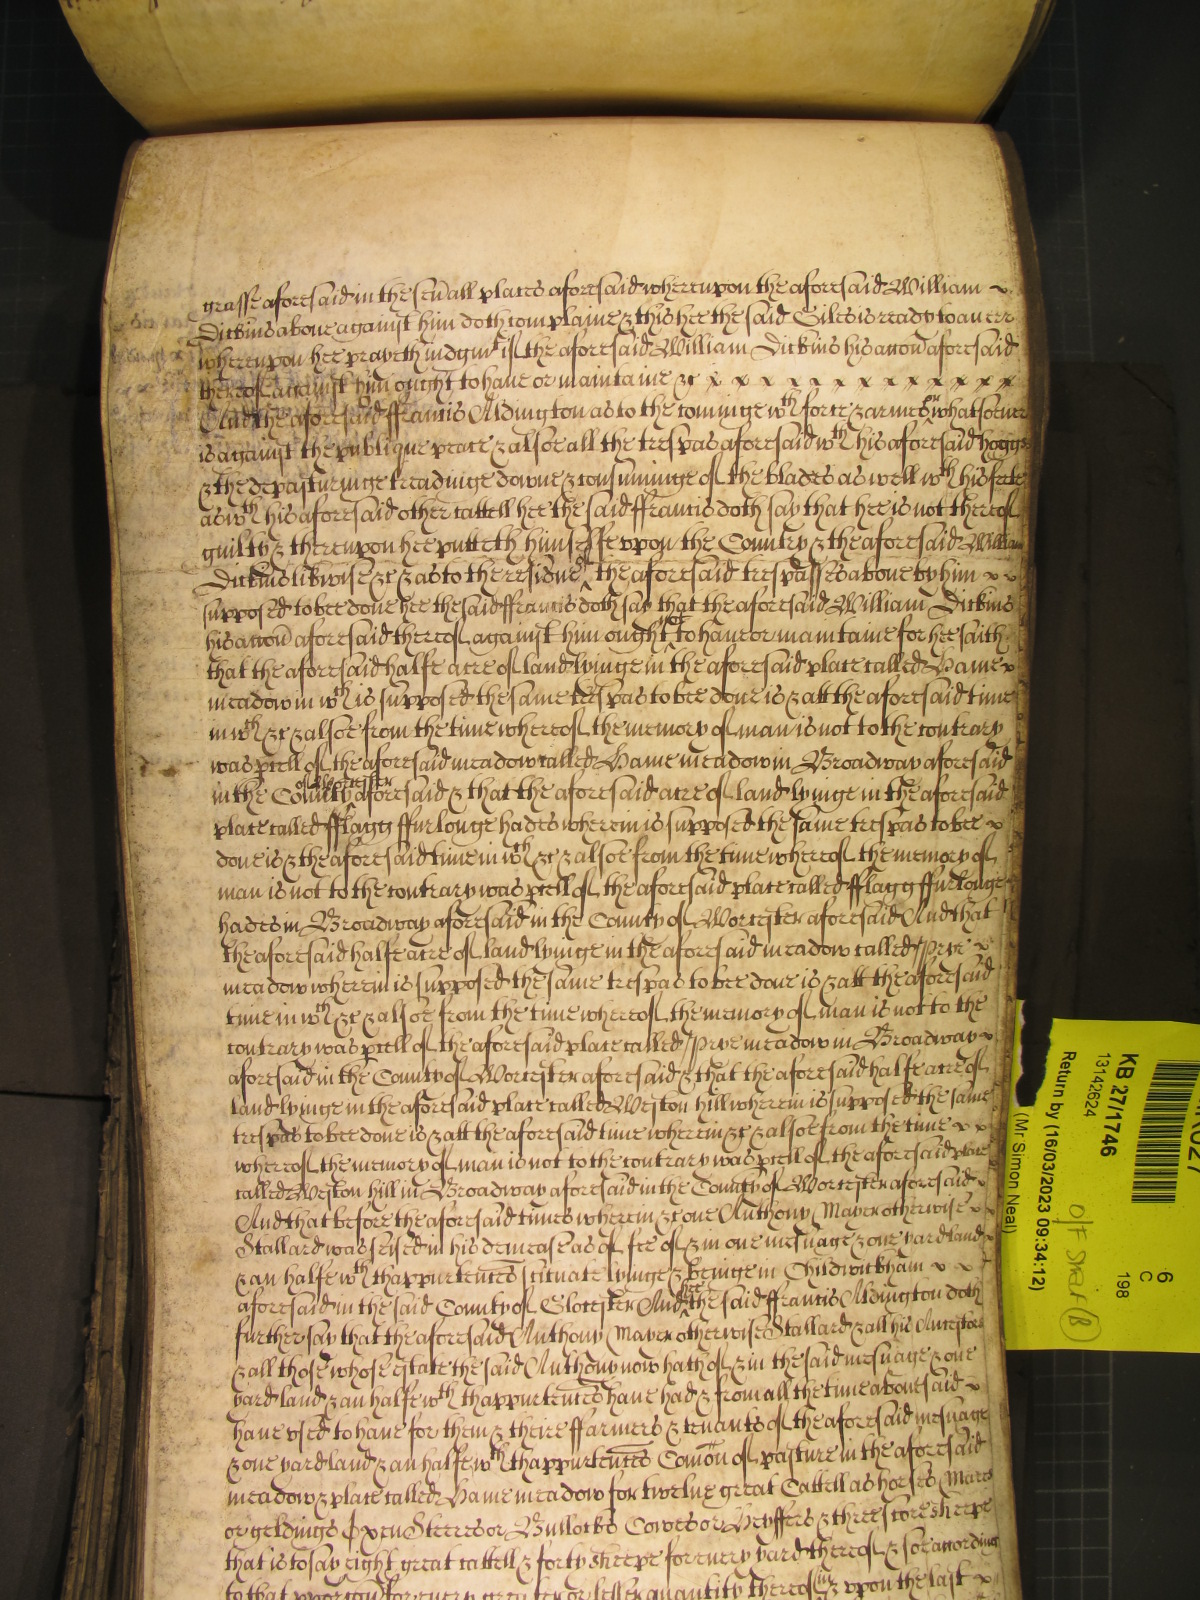 grasse aforesaid in the sev͠all places aforesaid whereupon the aforesaid William
Dickins above against him doth complaine & this hee the said Giles is ready to averr
whereupon hee prayeth iudgmt if the aforesaid William Dickins his accon͠ aforesaid
thereof against him ought to have or maintaine &c x x x x x x x x x x x x x
And the aforesaid ffrancis Aldington as to the cominge wth force & armes or whatsoever
is against the publique peace & alsoe all the trespas aforesaid wth his aforesaid hogges
& the depasturinge treadinge downe & consuminge of the blades as well wth his feete
as wth his aforesaid other cattell hee the said ffrancis doth say that hee is not thereof
guilty & thereupon hee putteth himselfe upon the Country & the aforesaid William
Dickins likewise &c & as to the residue of the aforesaid trespasses above by him
supposed to bee done hee the said ffrancis doth say that the aforesaid William Dickins
his accon͠ aforesaid thereof against him ought not to have or maintaine for hee saith
that the aforesaid halfe acre of land lyinge in the aforesaid place called Hame
meadow in wch is supposed the same trespas to bee done is & att the aforesaid time
in wch &c & alsoe from the time whereof the memory of man is not to the contrary
was p͠cell of the aforesaid meadow called Hame meadow in Broadway aforesaid
in the County of Worcester aforesaid & that the aforesaid acre of land lyinge in the aforesaid
place called fflagg ffurlonge hades wherein is supposed the same trespas to bee
done is & the aforesaid time in wch &c & alsoe from the time whereof the memory of
man is not to the contrary was p͠cell of the aforesaid place called fflagg ffurlonge
hades in Broadway aforesaid in the County of Worcester aforesaid And that
the aforesaid halfe acre of land lyinge in the aforesaid meadow called Prye
meadow wherein is supposed the same trespas to bee done is & att the aforesaid
time in wch &c & alsoe from the time whereof the memory of man is not to the
contrary was p͠cell of the aforesaid place called Prye meadow in Broadway
aforesaid in the County of Worcester aforesaid & that the aforesaid halfe acre of
land lyinge in the aforesaid place called Weston hill wherein is supposed the same
trespas to bee done is & att the aforesaid time wherein &c & alsoe from the time
whereof the memory of man is not to the contrary was p͠cell of the aforesaid place
called Weston hill in Broadway aforesaid in the County of Worcester aforesaid
And that before the aforesaid times wherein &c one Anthony Mayer otherwise
Stallard was seised in his demease as of fee of & in one mesuage & one yardland
& an halfe wth thappurten͠ces scituate lyinge & beinge in Childwickham
aforesaid in the said County of Glocester And hee the said ffrancis Aldington doth
further say that the aforesaid Anthony Mayer otherwise Stallard & all his Ancestors
& all those whose estate the said Anthony now hath of & in the said mesuage & one
yard land & an halfe wth thappurten͠ces have had & from all the time abovesaid
have used to have for them & theire ffarmers & tenants of the aforesaid mesuage
& one yard land & an halfe wth thappurten͠ces Com͠on of pasture in the aforesaid
meadow & place called Hame meadow for twelve great Cattell as horses Mares
or geldings Oxen Steeres or Bullocks Cowes or Heyffers & three score sheepe
that is to say eight great cattell & forty sheepe for every yard thereof & soe according
to that p͠porcon͠ for every greater or lesser quantity thereof upon the last
KB 27/1746
13142624
Return by (16/03/2023 09:34:12)
(Mr Simon Neal)
6
C
198